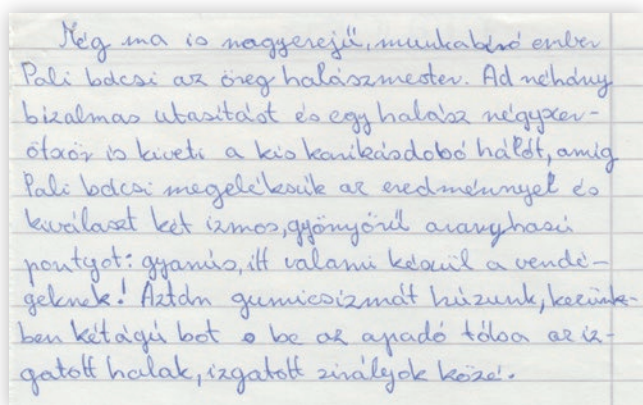 Még ma is nagyerejű, munkabíró ember
Pali bácsi az öreg halászmester. Ad néhány
bizalmas utasítást és egy halász négyszer-
ötször is kiveti a kis karikásdobó hálót, amíg
Pali bácsi megelékszik az eredménnyel és
kiválaszt két izmos, gyönyörű aranyhasú
pontyot: gyanús, itt valami készül a vendé-
geknek! Aztán gumicsizmát húzunk, kezünk-
ben kétágú bot s be az apadó tóba az iz-
gatott halak, izgatott sirályok közé.